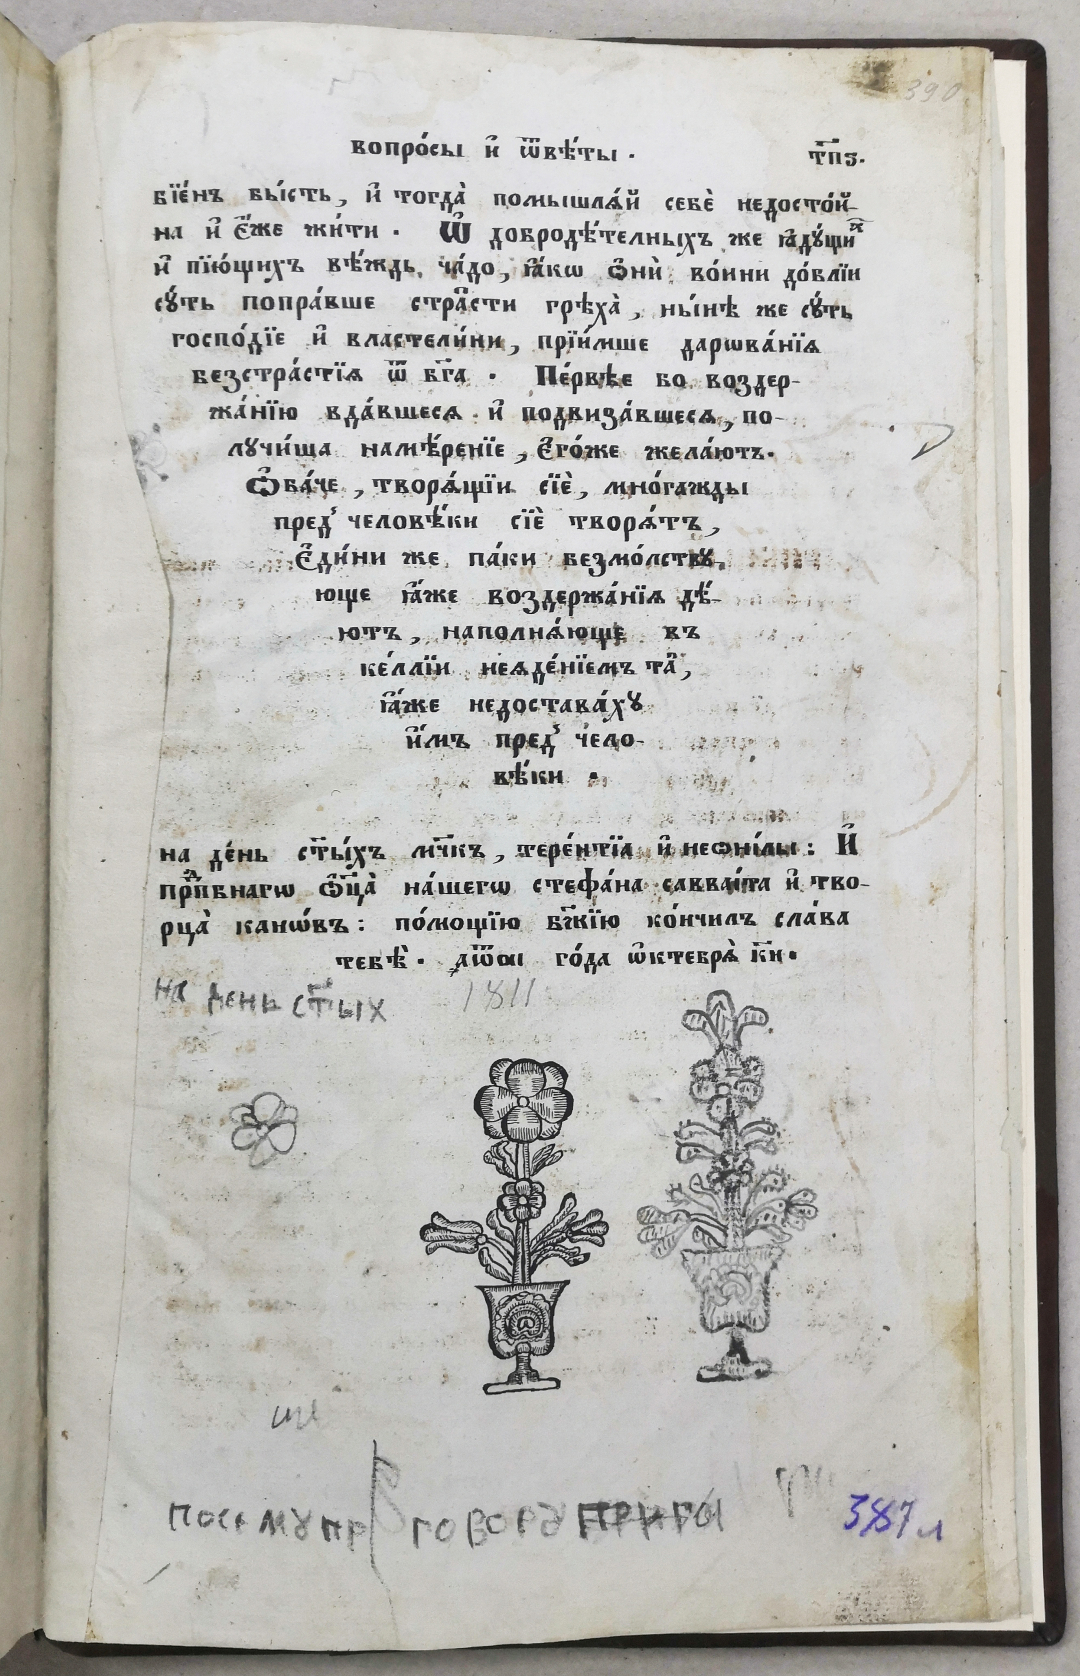 390
вопро́сы и҆ ѿвѣ́ты .
т҃пѕ.
бїе́нъ бы́сть, и҆ тогда̀ помышлѧ́й себѐ недосто́й-
на и҆ є҆́же жи́ти . Ѽ добродѣ́телныхъ же ꙗ҆дꙋ́щиⷯ
и҆ пїю́щихъ вѣ́ждь ча́до, ꙗ҆́кѡ ѻ҆нѝ во́ини до́влїи
сꙋ́ть попра́вше стра̑сти грѣха̀, ны́нѣ же сꙋ́ть
госпо́дїе и҆ властели́ни, прїи́мше дарѡва́нїѧ
безстра́стїѧ ѿ бг҃а . Пе́рвѣе бо воздер-
жа́нїю вда́вшесѧ и҆ подвиза́вшесѧ, по-
лꙋчи́ша намѣ́ренїе, є҆гѡ́же жела́ютъ.
Ѻ҆ба́че, творѧ́щїи сїѐ, мно́гажды
пред̾ человѣ́ки сїѐ творѧ́тъ,
є҆ди́ни же па́ки безмо́лствꙋ-
юще ꙗ҆́же воздержа́нїѧ дѣ́-
ютъ, наполнѧ́юще въ
ке́ллїи неѧде́нїемъ та̑,
ꙗ҆́же недостава́хꙋ
и҆́мъ пред̾ чело-
вѣ́ки .
на де́нь ст҃ы́хъ мч҃къ, тере́нтїа и҆ неѻни́лы: И҆
прпⷣбнагѡ ѻ҆ц҃а̀ на́шегѡ стефа́на савваи́та и҆ тво-
рца̀ канѡ́въ: по́мощїю бж҃їею ко́нчилъ сла́ва
тебѣ̀ . ҂аѿаі го́да ѻ҆ктебрѧ̀ к҃и.
на день ст҃ых 1811
посемꙋ пр говорꙋ
387 л